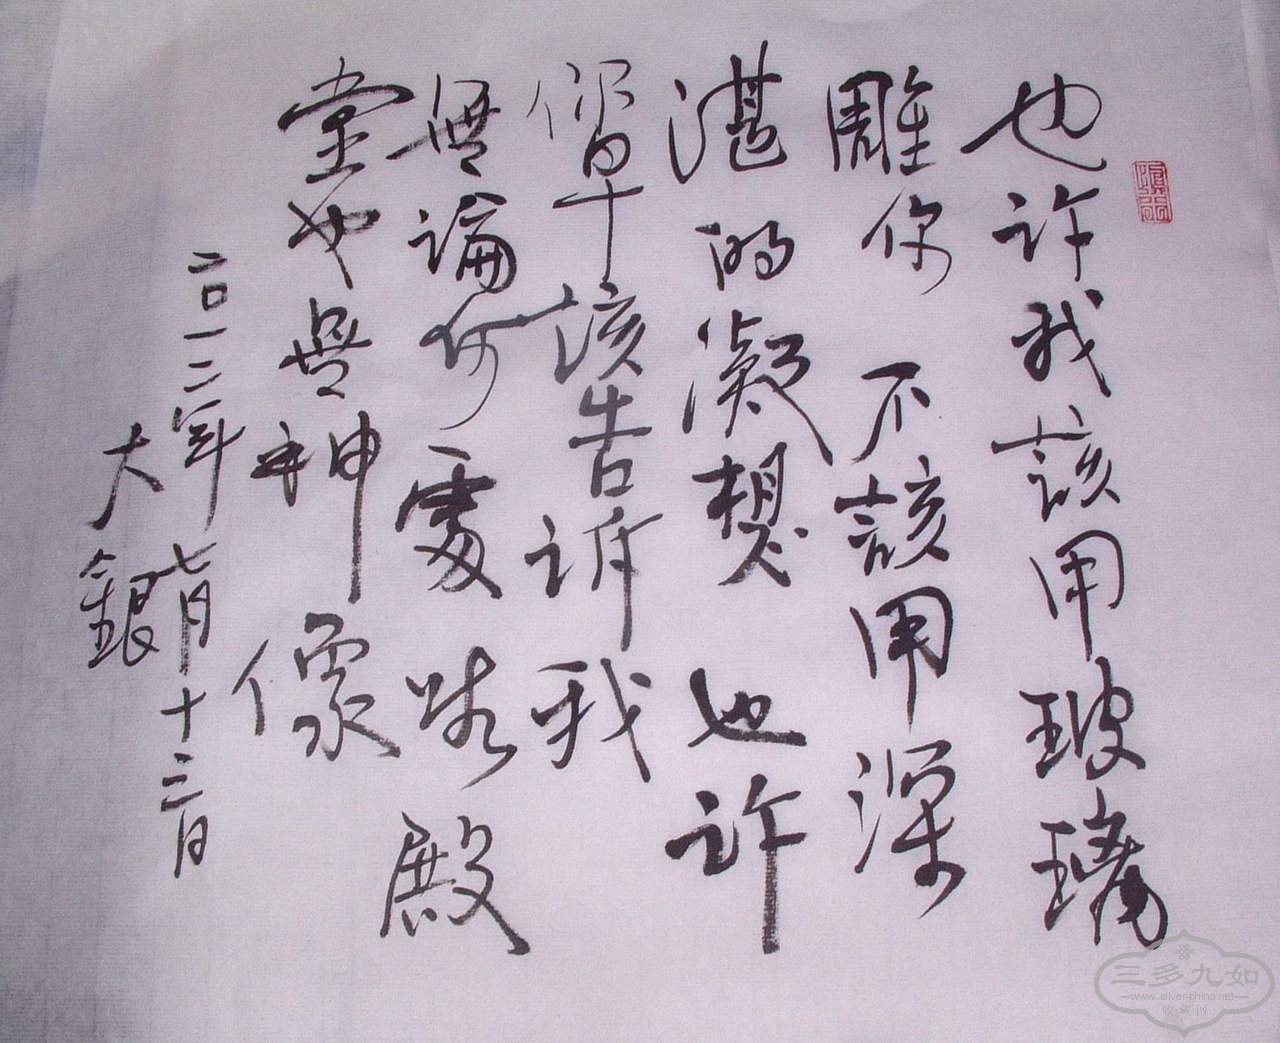 也许我該用玻璃
雕你 不該用深
湛的凝想 也许
你早該告诉我
無論何處 殿
堂也無神像
二〇一二年七月十三日
大銀
三多九如
www.silver-china.net
收·藏·网